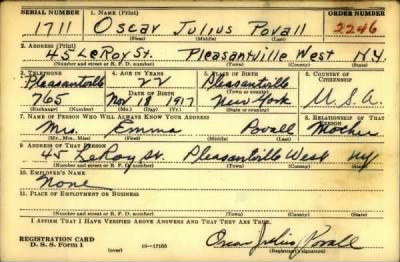 SERIAL NUMBER 1. NAME (Print) ORDER NUMBER
1711 Oscar Julius Povall 2246
(First) (Middle) (Last)
2. ADDRESS (Print)
45 LeRoy St. Pleasantville West N.Y.
(Number and street or R. F. D. number) (Town) (County) (State)
3. TELEPHONE 4. AGE IN YEARS 5. PLACE OF BIRTH 6. COUNTRY OF CITIZENSHIP
Pleasantville 22 Pleasantville
DATE OF BIRTH (Town or county)
765 Nov 18 1917 New York U.S.A.
(Exchange) (Number) (Mo.) (Day) (Yr.) (State or country)
7. NAME OF PERSON WHO WILL ALWAYS KNOW YOUR ADDRESS 8. RELATIONSHIP OF THAT PERSON
Mrs. Emma Povall Mother
(Mr., Mrs., Miss) (First) (Middle) (Last)
9. ADDRESS OF THAT PERSON
45 LeRoy St. Pleasantville West NY
(Number and street or R. F. D. number) (Town) (County) (State)
10. EMPLOYER'S NAME
None
11. PLACE OF EMPLOYMENT OR BUSINESS
(Number and street or R. F. D. number) (Town) (County) (State)
I AFFIRM THAT I HAVE VERIFIED ABOVE ANSWERS AND THAT THEY ARE TRUE.
REGISTRATION CARD
D. S. S. Form 1 (over) 16—17105 Oscar Julius Povall
(Registrant's signature)